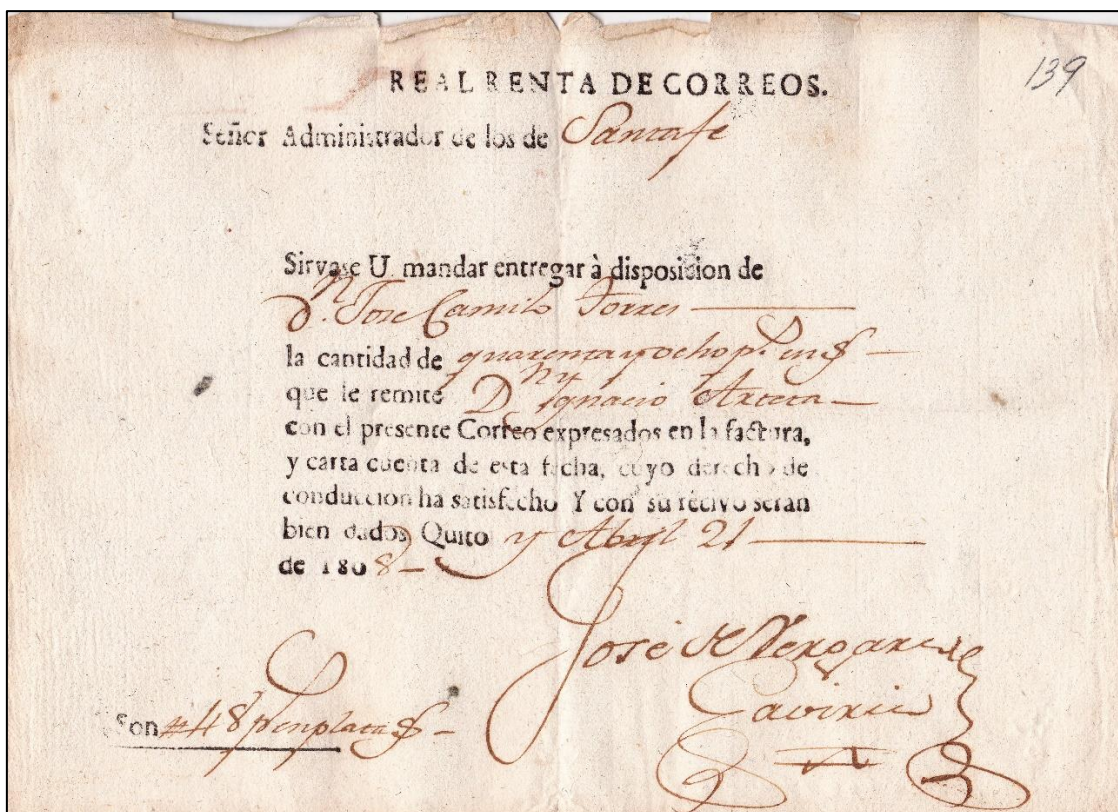 139
REAL RENTA DE CORREOS.
Señor Administrador de los de Santafe
Sirvase U. mandar entregar à disposicion de
D.n Jose Camilo Torres
la cantidad de quarenta y ocho p.s en
que le remite D.n Ygnacio Arteta
con el presente Correo expresados en la factura,
y carta cuenta de esta fecha, cuyo derecho de
conduccion ha satisfecho Y con su recivo seran
bien dados Quito y Abril 21
de 1808
José de Vergara
Gaviria
Son #48 p.s en plata